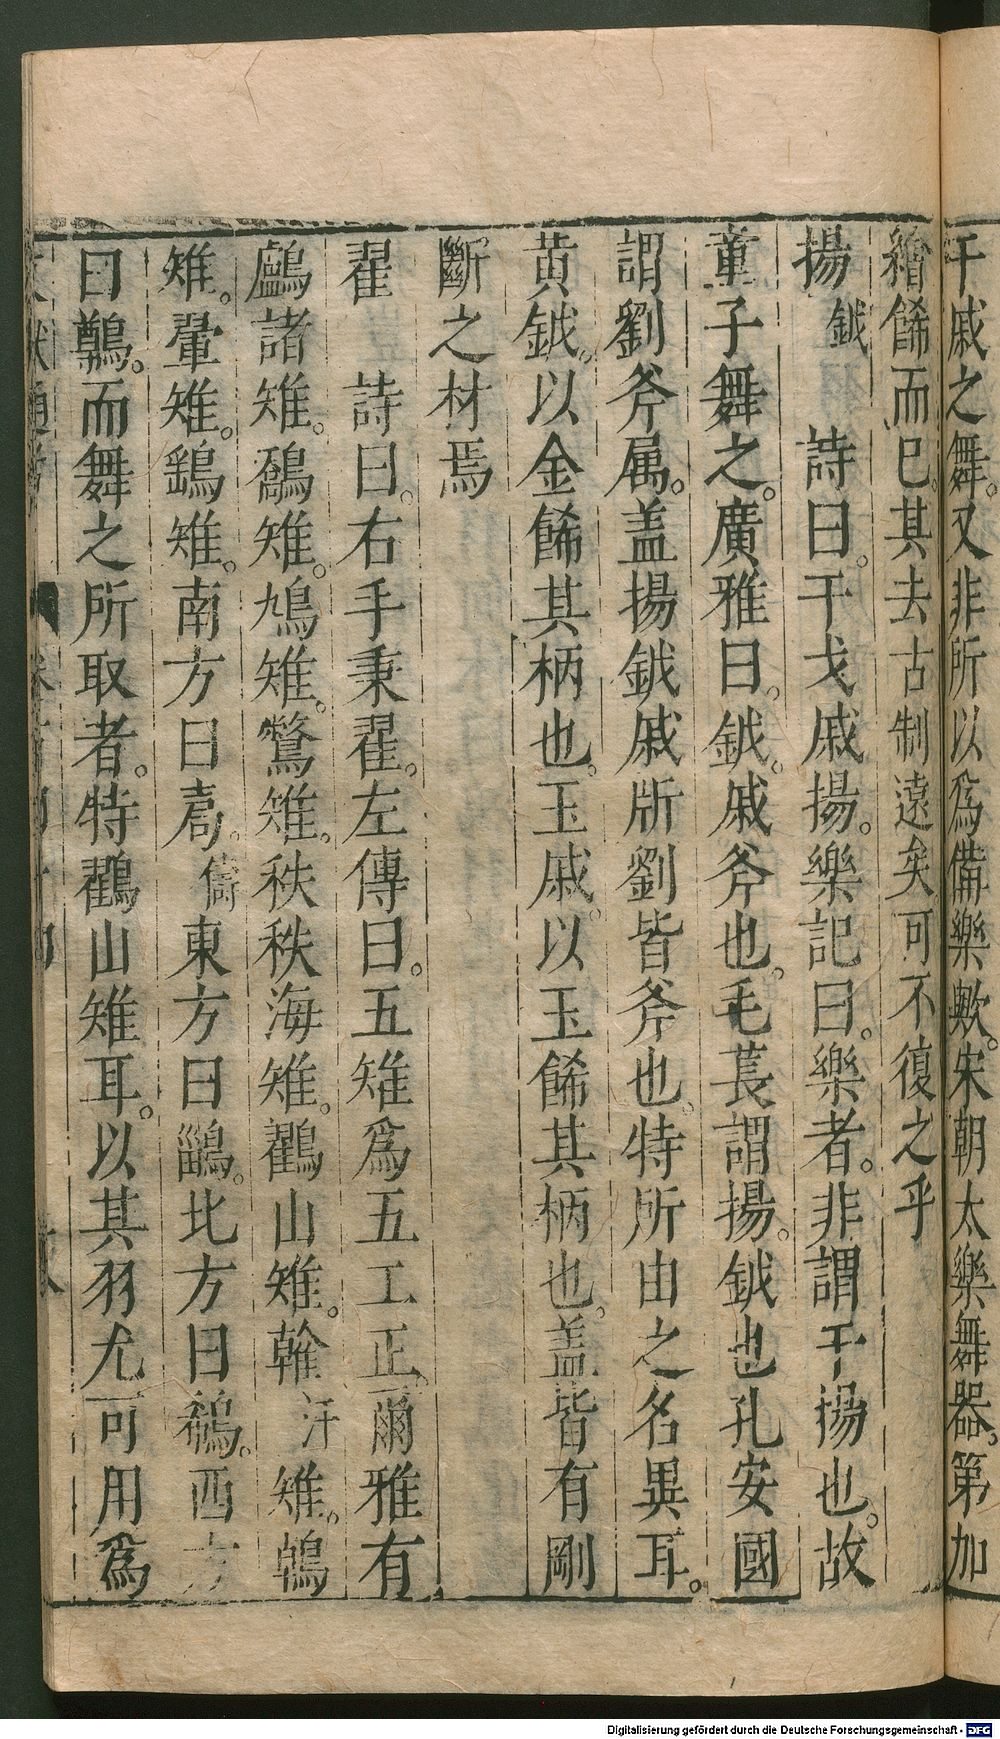 干戚之舞。又非所以爲備樂歟。宋朝太樂舞器。第加
繪餙而已。其去古制遠矣。可不復之乎
揚 鉞 詩曰。干戈戚揚。樂記曰。樂者。非謂干揚也。故
童子舞之。廣雅曰。鉞。戚斧也。毛萇謂揚。鉞也孔安國
謂劉斧属。盖揚鉞戚斨劉皆斧也。特所由之名異耳。
黄鉞。以金餙其柄也。玉戚。以玉餙其柄也。盖皆有剛
斷之材焉
翟 詩曰。右手秉翟。左傳曰。五雉爲五工正。爾雅有
鸕諸雉。鷮雉。鳩雉。鷩雉。秩秩海雉。鸐山雉。雗 汗 雉。鵫
雉。翬雉。鷂雉。南方曰翯。儔 東方曰鶅。北方曰鵗。西方
曰鷷。而舞之所取者。特鸐山雉耳。以其羽尤可用爲
Digitalisierung gefördert durch die Deutsche Forschungsgemeinschaft - DFG